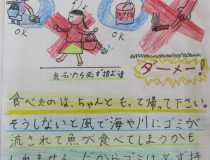 OK
OK
気づいたら必ず拾おう
ダーメー!
食べたのは、ちゃんともって帰て下さい。
そうしないと風で海や川にゴミが
流されて魚が食べてしまうかも
しれません。だからゴミは必ず持